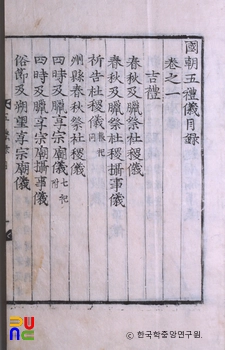 國朝五禮儀目錄
卷之一
吉禮
春秋及臘祭社稷儀
春秋及臘祭社稷攝事儀
祈告社稷儀
州縣春秋祭社稷儀
四時及臘享宗廟儀 七祀附
四時及臘享宗廟攝事儀
俗節及朔望享宗廟儀
한국학중앙연구원